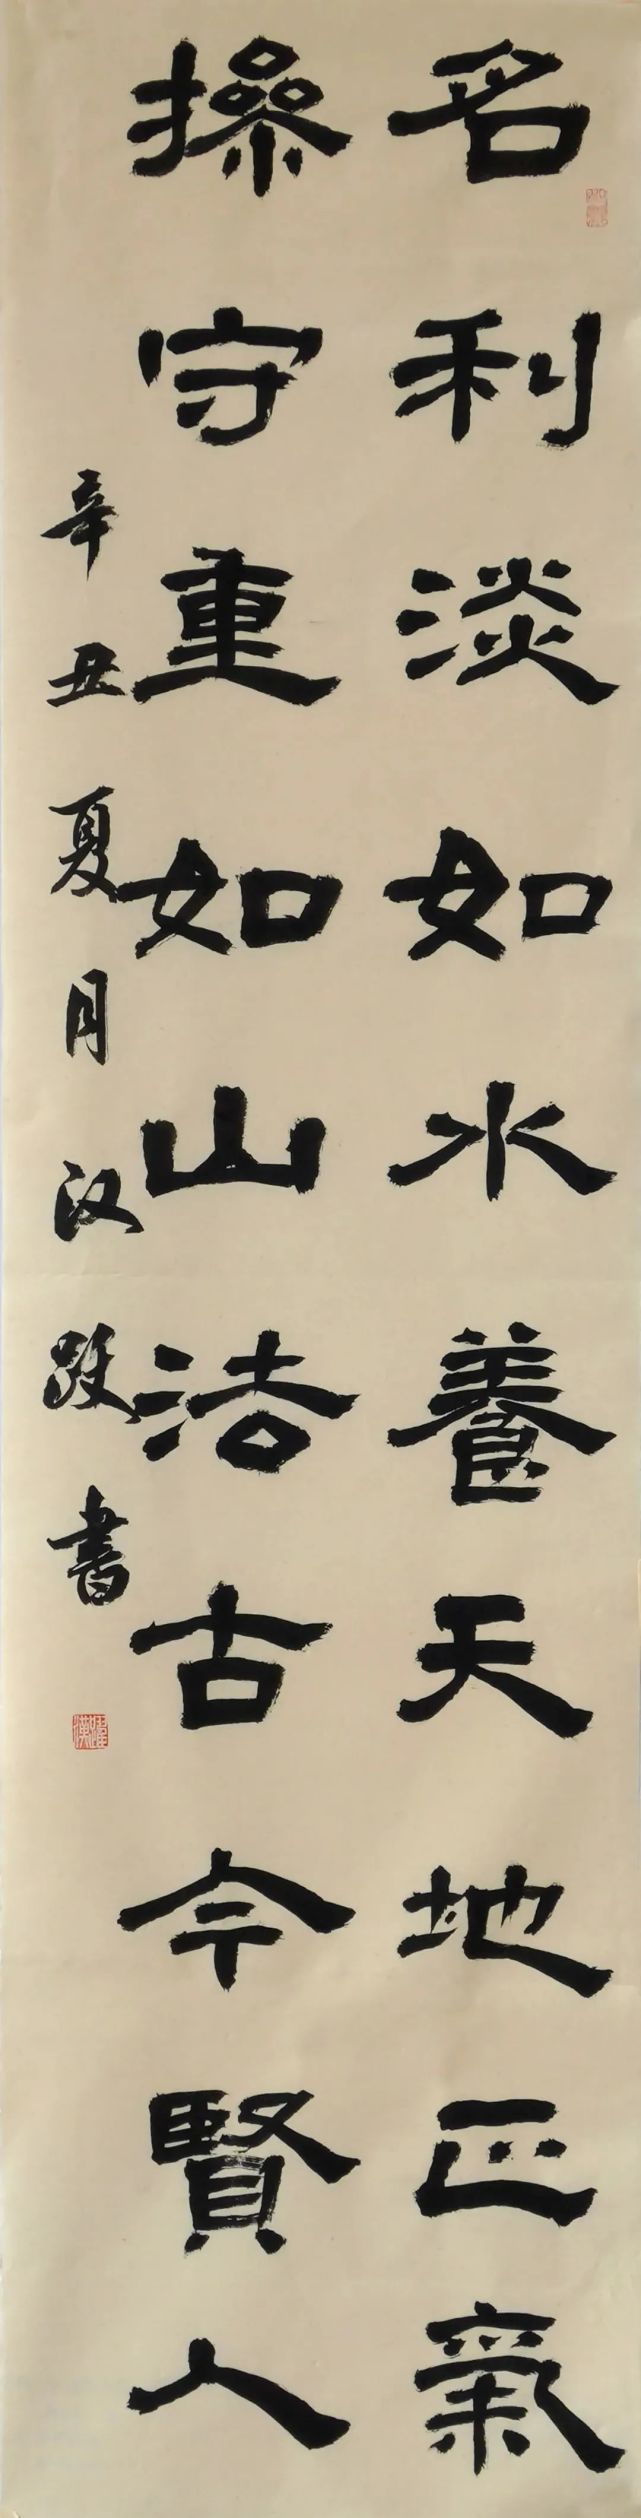 名利淡如水養天地正氣
操守重如山法古今賢人
辛丑夏月汉跃書